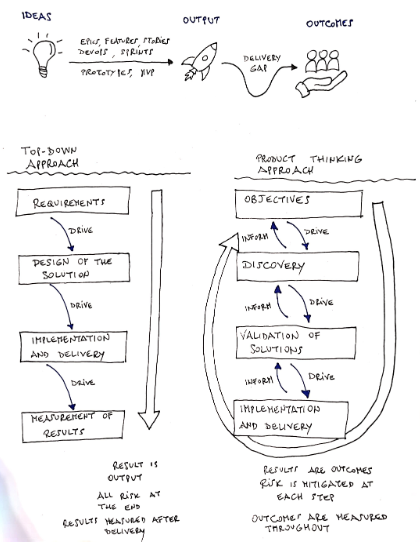 IDEAS
OUTPUT
OUTCOMES
EPICS, FEATURES, STORIES
DEVOPS, SPRINTS
PROTOTYPES, MVP
DELIVERY
GAP
TOP-DOWN
APPROACH
REQUIREMENTS
DRIVE
DESIGN OF THE
SOLUTION
DRIVE
IMPLEMENTATION
AND DELIVERY
DRIVE
MEASUREMENT OF
RESULTS
RESULT IS
OUTPUT
ALL RISK AT
THE END
RESULTS MEASURED AFTER
DELIVERY
PRODUCT THINKING
APPROACH
OBJECTIVES
INFORM
DRIVE
DISCOVERY
INFORM
DRIVE
VALIDATION OF
SOLUTIONS
INFORM
DRIVE
IMPLEMENTATION
AND DELIVERY
RESULTS ARE OUTCOMES
RISK IS MITIGATED AT
EACH STEP
OUTCOMES ARE MEASURED
THROUGHOUT